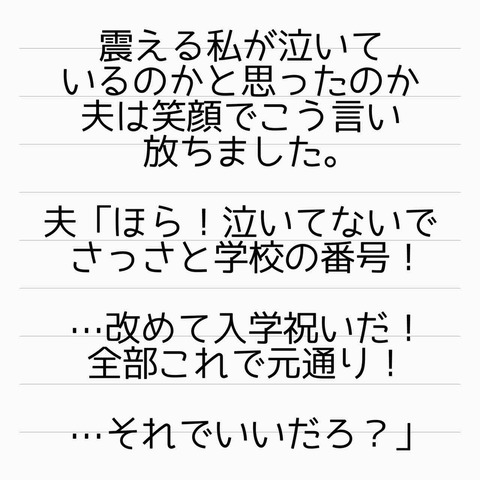 震える私が泣いて
いるのかと思ったのか
夫は笑顔でこう言い
放ちました。
夫「ほら！泣いてないで
さっさと学校の番号！
…改めて入学祝いだ！
全部これで元通り！
…それでいいだろ？」